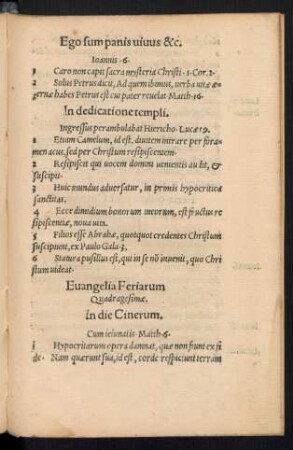 Ego sum panis uiuus &c.
Ioannis ·6·
1 Caro non capit sacra mysteria Christi ·1·Cor.1·
2 Solus Petrus dicit, Ad quem ibimus, uerba uitæ æ-
ternæ habes Petrus est cui pater reuelat Matth·16·
In dedicatione templi.
Ingressus perambulabat Hiericho·Lucæ 19.
1 Etiam Camelum, id est, diuitem intrare per foramen acus, sed per Christum resipiscentem·
2 Resipiscit qui uocem domini uenientis audit, &
suscipit·
3 Huic mundus aduersatur, in primis hypocriticæ
sanctitas·
4 Ecce dimidium bonorum meorum, est fructus re
sipiscentiæ, noua uita·
5 Filios esse Abrahæ, quotquot credentes Christum
suscipiunt, ex Paulo Gala·3,
6 Statura pusillus est, qui in se nō inuenit, quo Chri
stum uideat·
Euangelia Feriarum
Quadragesimæ.
In die Cinerum.
Cum ieiunatis·Matth·6·
1 Hypocritarum opera damnat, quæ non fiunt ex fi
de· Nam quærunt sua, id est, corde respiciunt terram